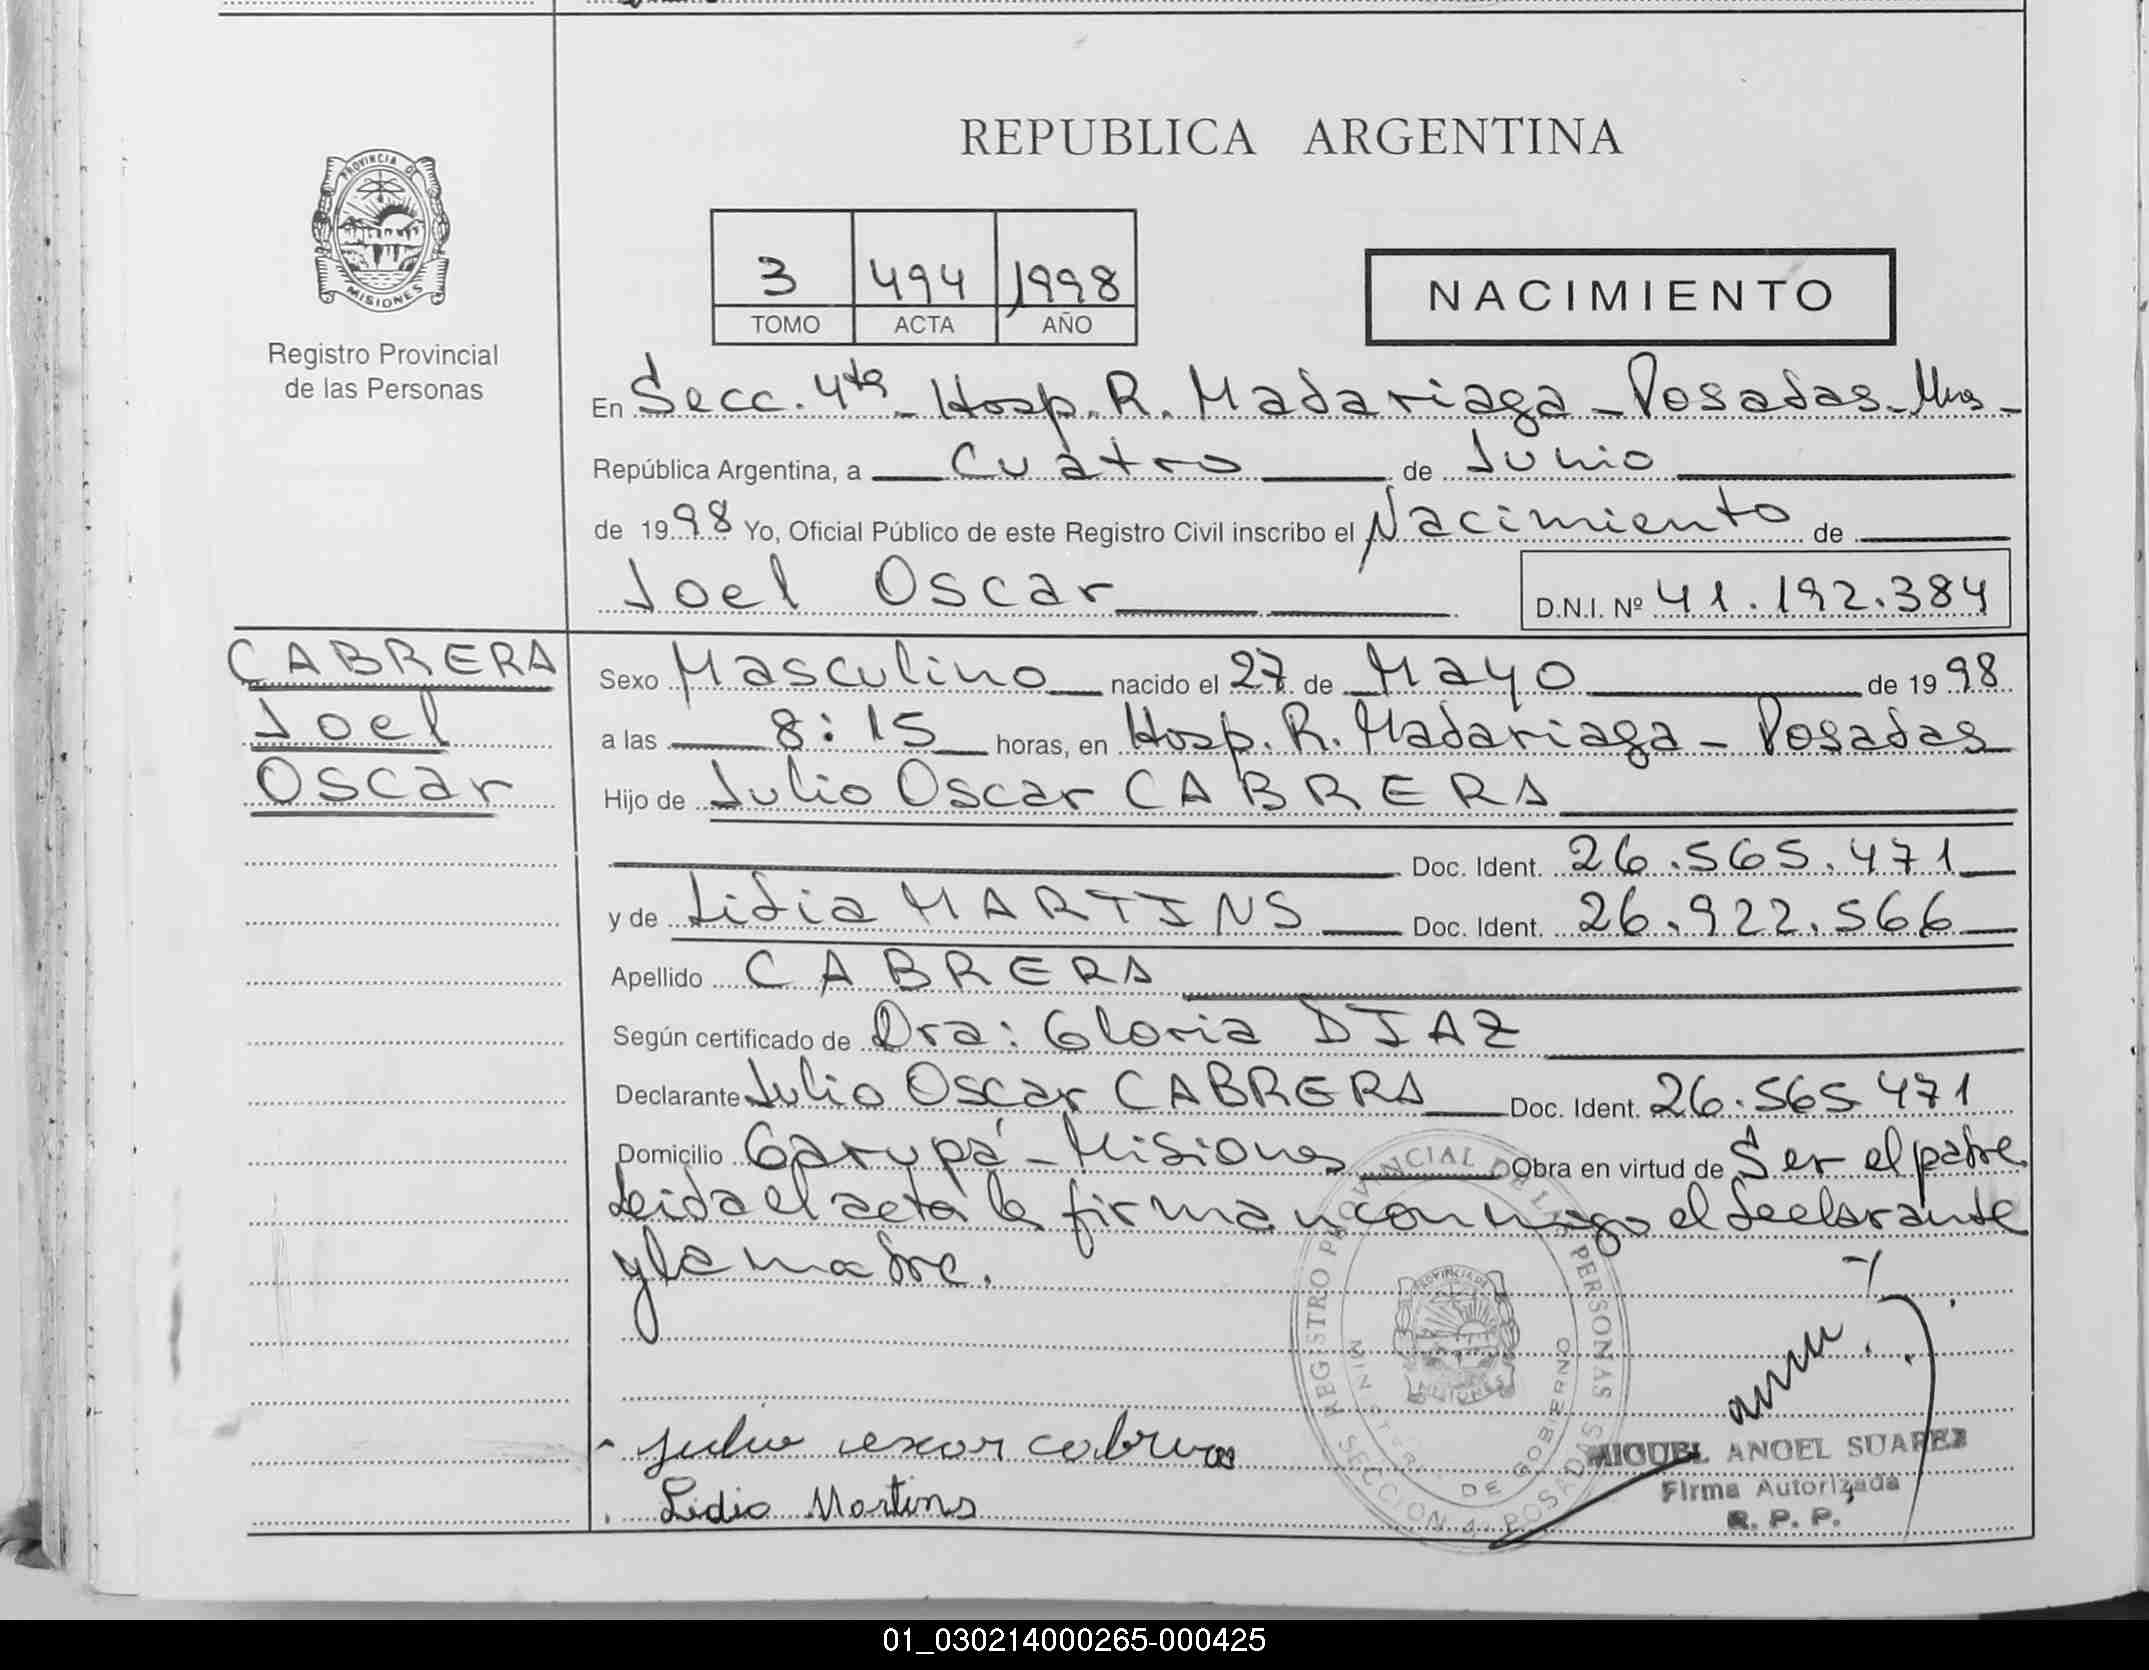 REPUBLICA ARGENTINA
PROVINCIA DE
MISIONES
Registro Provincial
de las Personas
3 494 1998
TOMO ACTA AÑO
NACIMIENTO
En Secc. 4ta - Hosp. R. Madariaga - Posadas - Mnes -
República Argentina, a Cuatro de Junio
de 1998 Yo, Oficial Público de este Registro Civil inscribo el Nacimiento de
Joel Oscar D.N.I. Nº 41.192.384
CABRERA
Joel
Oscar
Sexo Masculino nacido el 27 de Mayo de 1998
a las 8:15 horas, en Hosp. R. Madariaga - Posadas
Hijo de Julio Oscar CABRERA
Doc. Ident. 26.565.471
y de Lidia MARTINS Doc. Ident. 26.922.566
Apellido CABRERA
Según certificado de Dra: Gloria DIAZ
Declarante Julio Oscar CABRERA Doc. Ident. 26.565.471
Domicilio Garupá - Misiones Obra en virtud de Ser el padre
Leida el acta la firman conmigo el declarante
y la madre.
REGISTRO PROVINCIAL DE LAS PERSONAS
MINISTERIO DE GOBIERNO
SECCION 4ª POSADAS
PROVINCIA DE
MISIONES
Lidia Martins
MIGUEL ANGEL SUAREZ
Firma Autorizada
R. P. P.
01_030214000265-000425